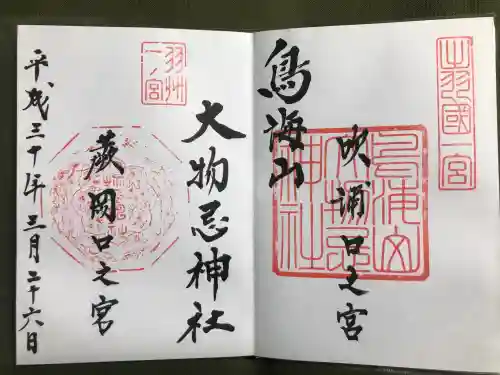 出羽國一宮
鳥海山
吹浦口之宮
大物忌神社
羽州
一ノ宮
蕨岡口之宮
平成三十年三月二十六日